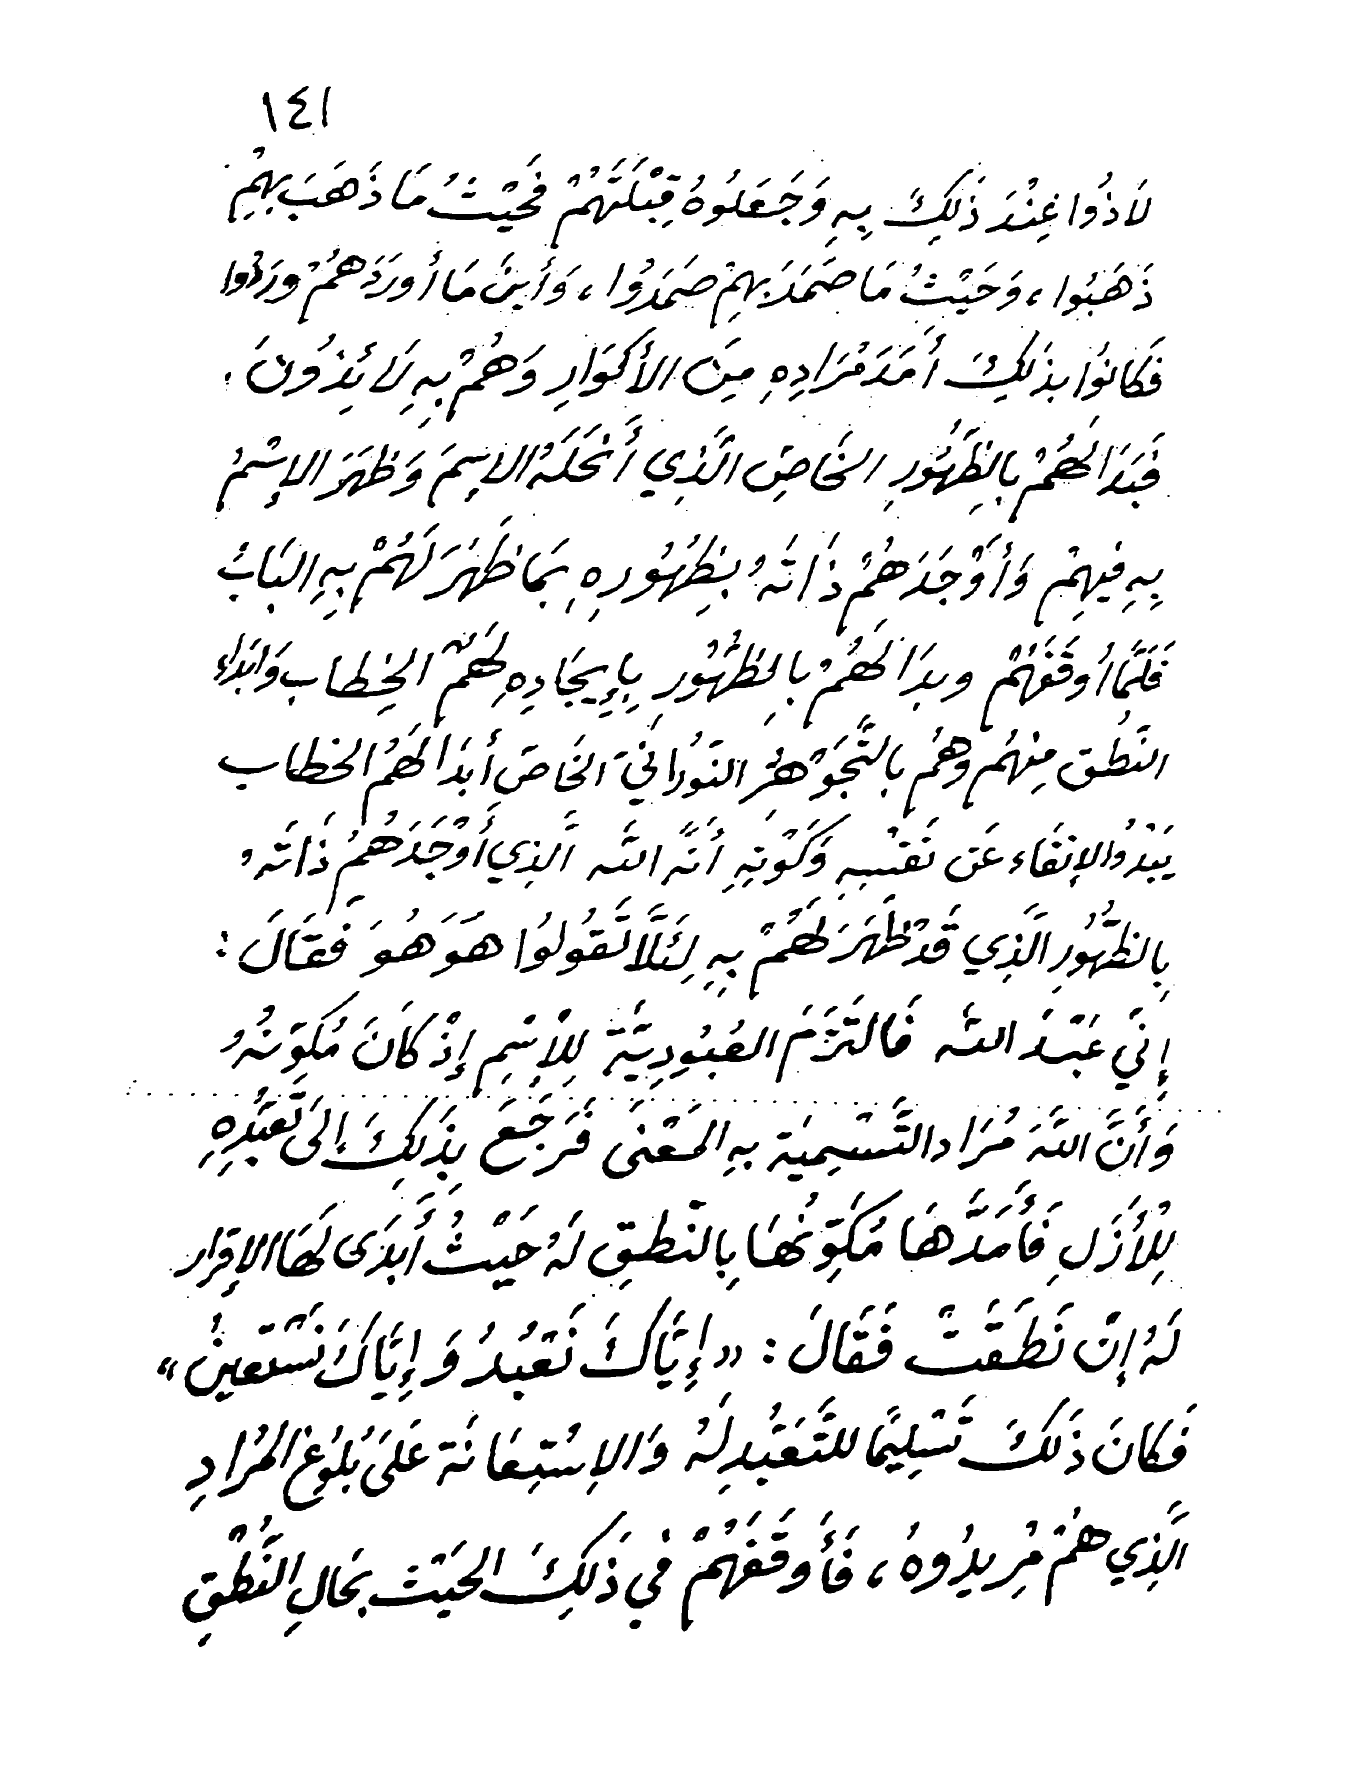 ١٤١
لَاذُوا عِنْدَ ذَلِكَ بِهِ وَجَعَلُوهُ قِبْلَتَهُمْ فَحَيْثُ مَا ذَهَبَ بِهِمْ
ذَهَبُوا، وَحَيْثُ مَا صَمَدَ بِهِمْ صَمَدُوا، وَأَينَ مَا أَورَدَهُمْ وَرَدُوا
فَكَانُوا بِذَلِكَ أَمَدَ مُرَادِهِ مِنَ الأَكْوَارِ وَهُمْ بِهِ لَائِذُونَ،
فَبَدَا لَهُمْ بِالظِهُورِ الخَاصِ الَّذِي أَنْحَلَهُ الاسِمَ وَظَهَرَ الإِسْمُ
بِهِ فِيهِمْ وَأَوْجَدَهُمْ ذَاتَهُ بِظُهُورِهِ بِمَا ظَهَرَ لَهُمْ بِهِ البَابُ
فَلَمَّا أَوقَفَهُمْ وبدَا لَهُمْ بِالظُّهُورِ بِإِيجَادِهِ لَهُمُ الخِطابِ وَابَدَاء
النُطقِ مِنْهُم وَهُم بِالتَّجَوْهُرِ النَورَانَيِ الخَاصِ أَبدَا لَهُمُ الخطاب
يَبْدُو الإِنفَاء عَن نَفسِهِ وَكَوْنِهِ أَنَّهُ اللَّه الَّذِي أَوْجَدَهُمُ ذَاتَهُ
بِالظُّهُورِ الَّذِي قَدْ ظَهَرَ لَهُمْ بِهِ لِئَلَّا تَقُولُوا هوَ هُوَ فَقَالَ :
إِنِّي عَبْدُ اللَّه فَالتَزَمَ العُبُودِيَّةَ لِلْإِسْمِ إِذْ كَانَ مُكَوِّنُهُ
وَأَنَّ اللَّهَ مُرَاد التَّسْمِيَة بِهِ المَعْنَى فَرَجَعَ بِذَلِكَ إلَى تَعَبُّدِهِ
لِلْأَزَلِ فَأَمَدَّهَا مُكَوِّنُهَا بِالنّطقِ لَهُ حَيْثُ أَبدَى لَهَا الإِقرار
لَهُ إِنْ نَطَقَتْ فَقَالَ : «إِيَّاكَ نَعْبُدُ وَإِيَّاكَ نَسْتَعِينُ»
فَكَانَ ذَلَكَ تَسْلِيمًا للتَّعَبُّدِ لَهُ وَالاِسْتِعَانَة عَلَى بُلُوغِ المُرادِ
الَّذِي هُمْ مُرِيدُوهُ، فَأَوقَفَهُمْ فِي ذَلِكَ الحَيْث بحَالِ النُّطْقِ